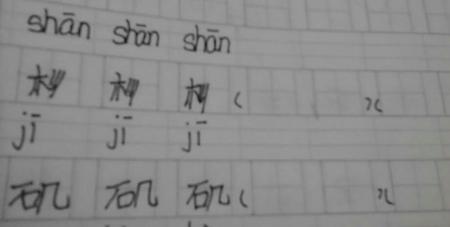 shān shān shān
杉 杉 杉 ( )(
jī jī jī
矶 矶 矶 ( )(